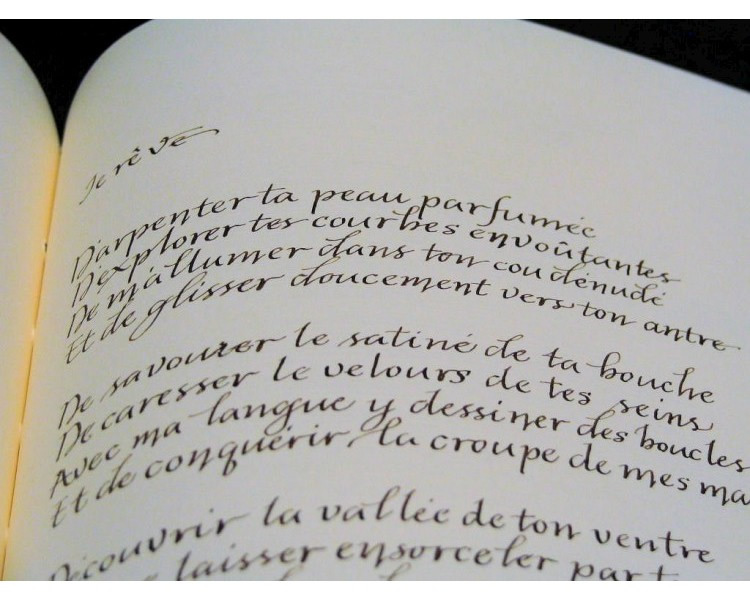 Je rêve
D'arpenter ta peau parfumée
D'explorer tes courbes envoûtantes
De m'allumer dans ton cou dénudé
Et de glisser doucement vers ton antre
De savourer le satiné de ta bouche
De caresser le velours de tes seins
Avec ma langue y dessiner des boucles
Et de conquérir la croupe de mes ma
Découvrir la vallée de ton ventre
laisser ensorceler par t